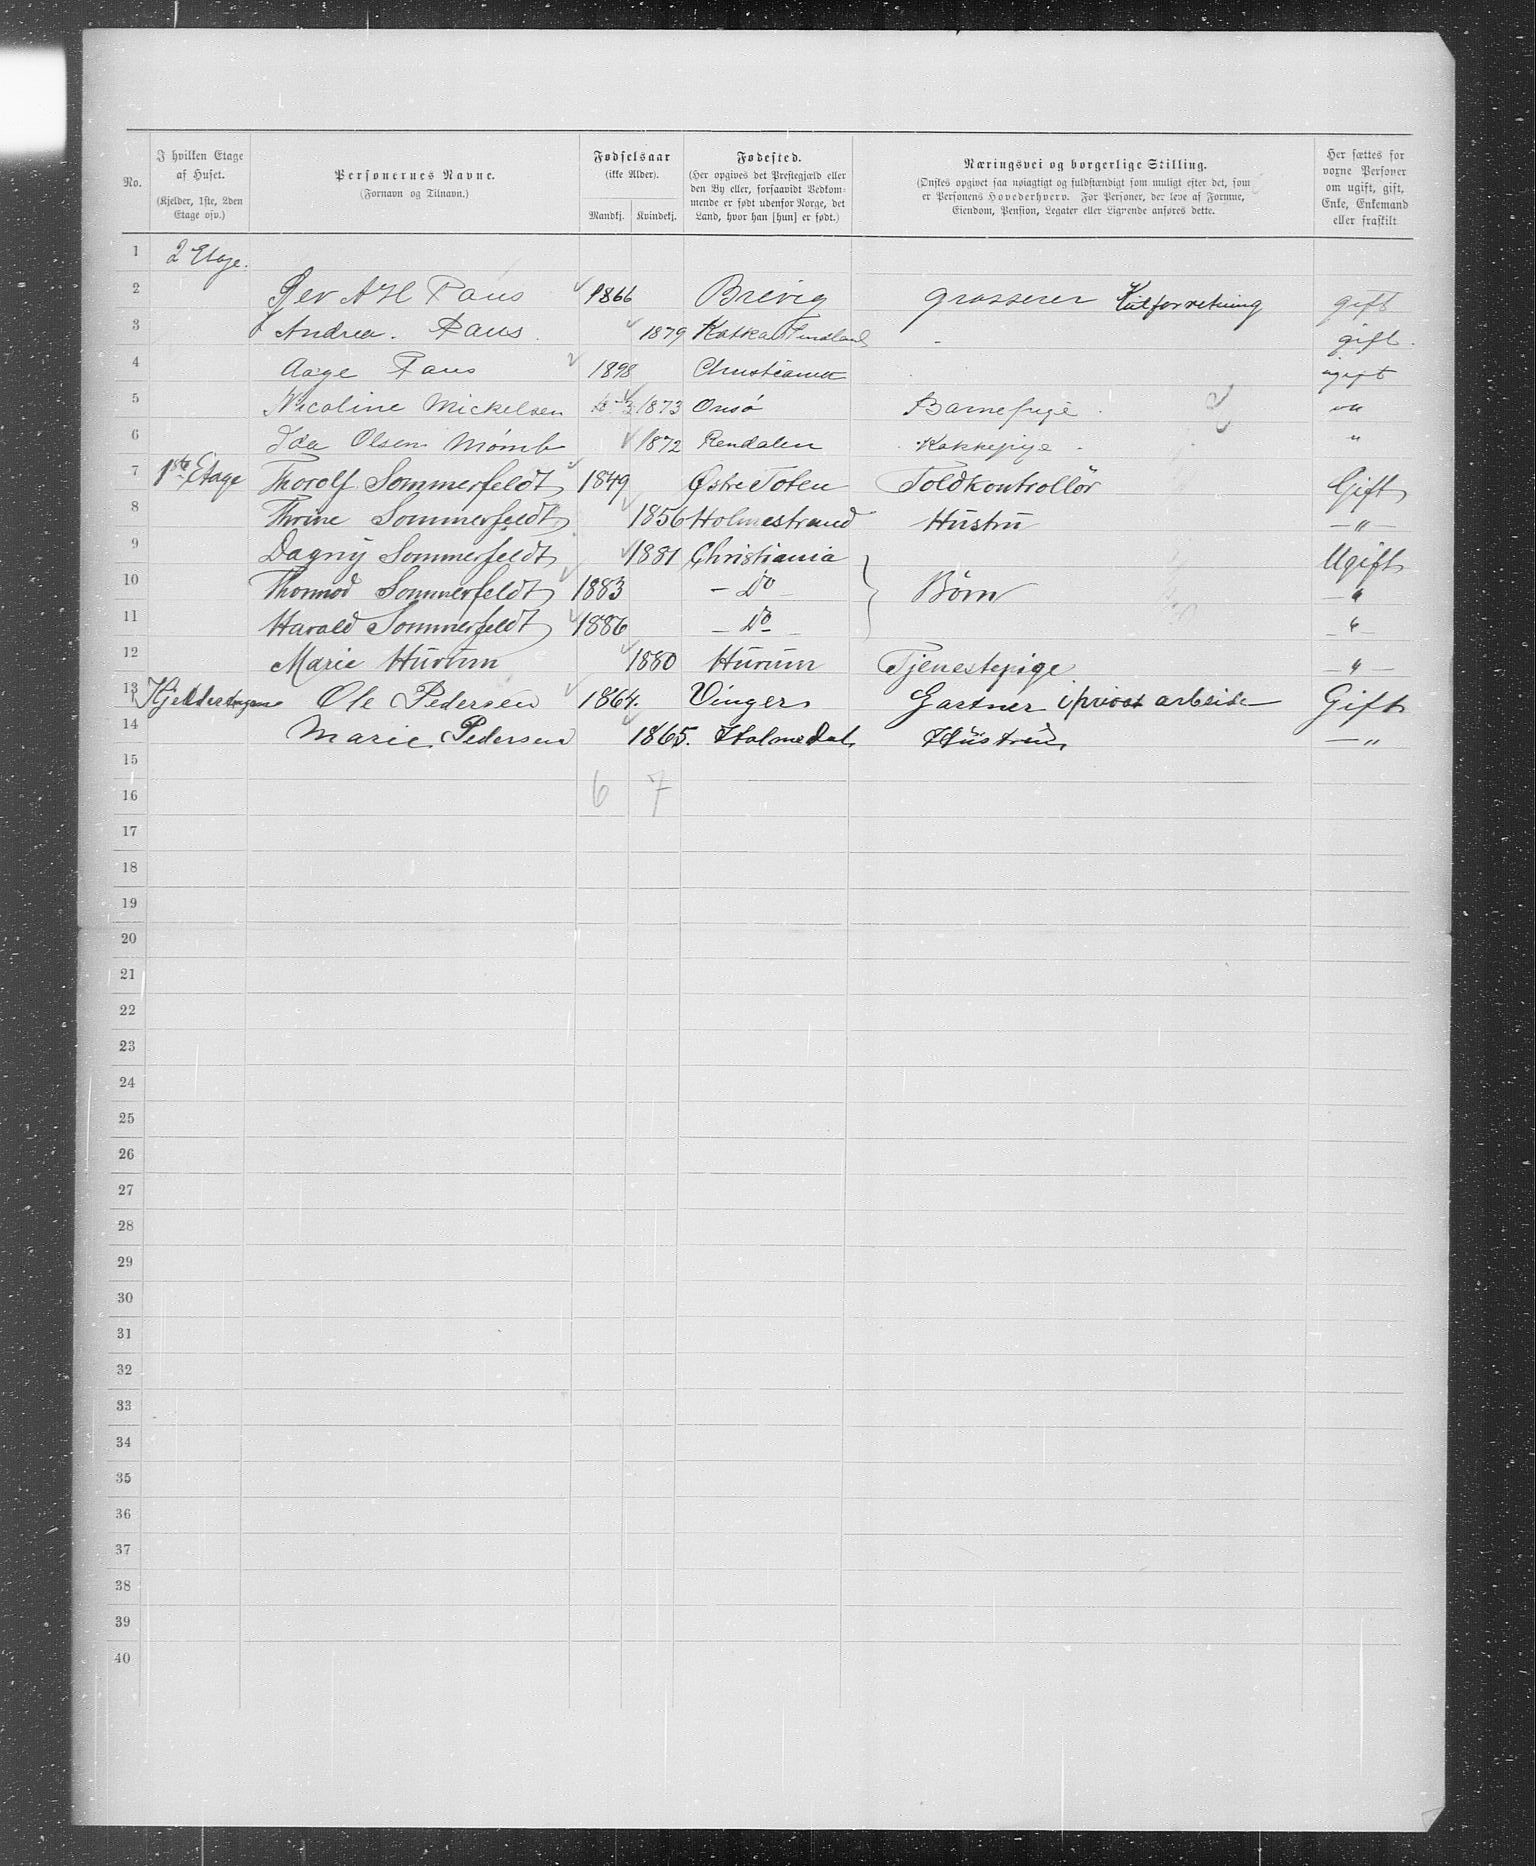 No.
I hvilken Etage af Huset.
(Kjelder, 1ste, 2den Etage osv.)
Personernes Navne.
(Fornavn og Tilnavn.)
Fødselsaar
(ikke Alder).
Mandkj. Kvindekj.
Fødested.
(Her opgives det Prestegjæld eller den By eller, forsaavidt Vedkommende er født udenfor Norge, det Land, hvor han [hun] er født.)
Næringsvei og borgerlige Stilling.
(Ønskes opgivet saa nøiagtigt og fuldstændigt som muligt efter det, som er Personens Hovederhverv. For Personer, der leve af Formue, Eiendom, Pension, Legater eller Lignende anføres dette.)
Her sættes for voxne Personer om ugift, gift, Enke, Enkemand eller fraskilt
1 2 Etage.
2 A H Paus 1866 Brevig grosserer Kulforretning gift
3 Andrea. Paus. 1879 gift.
4 Aage Paus 1898 Christiania ugift
5 Nicoline Mickelsen 1873 Onsø Barnepige "
6 Ida Olsen 1872 Rendalen Kokkepige "
7 1ste Etage Thorolf Sommerfeldt 1849 Østre Toten Toldkontrollör Gift
8 Thrine Sommerfeldt 1856 Holmestrand Hustru — " —
9 Dagny Sommerfeldt 1881 Christiania Ugift
10 Thormod Sommerfeldt 1883 — Do — } Börn — " —
11 Harald Sommerfeldt 1886 — Do — — " —
12 Marie Hurum 1880 Hurum Tjenestepige — " —
13 Ole Pedersen 1864. Vinger Gartner i privat arbeide Gift
14 Marie Pedersen 1865. Holmedal Hustru — "
15
16 6 7
17
18
19
20
21
22
23
24
25
26
27
28
29
30
31
32
33
34
35
36
37
38
39
40